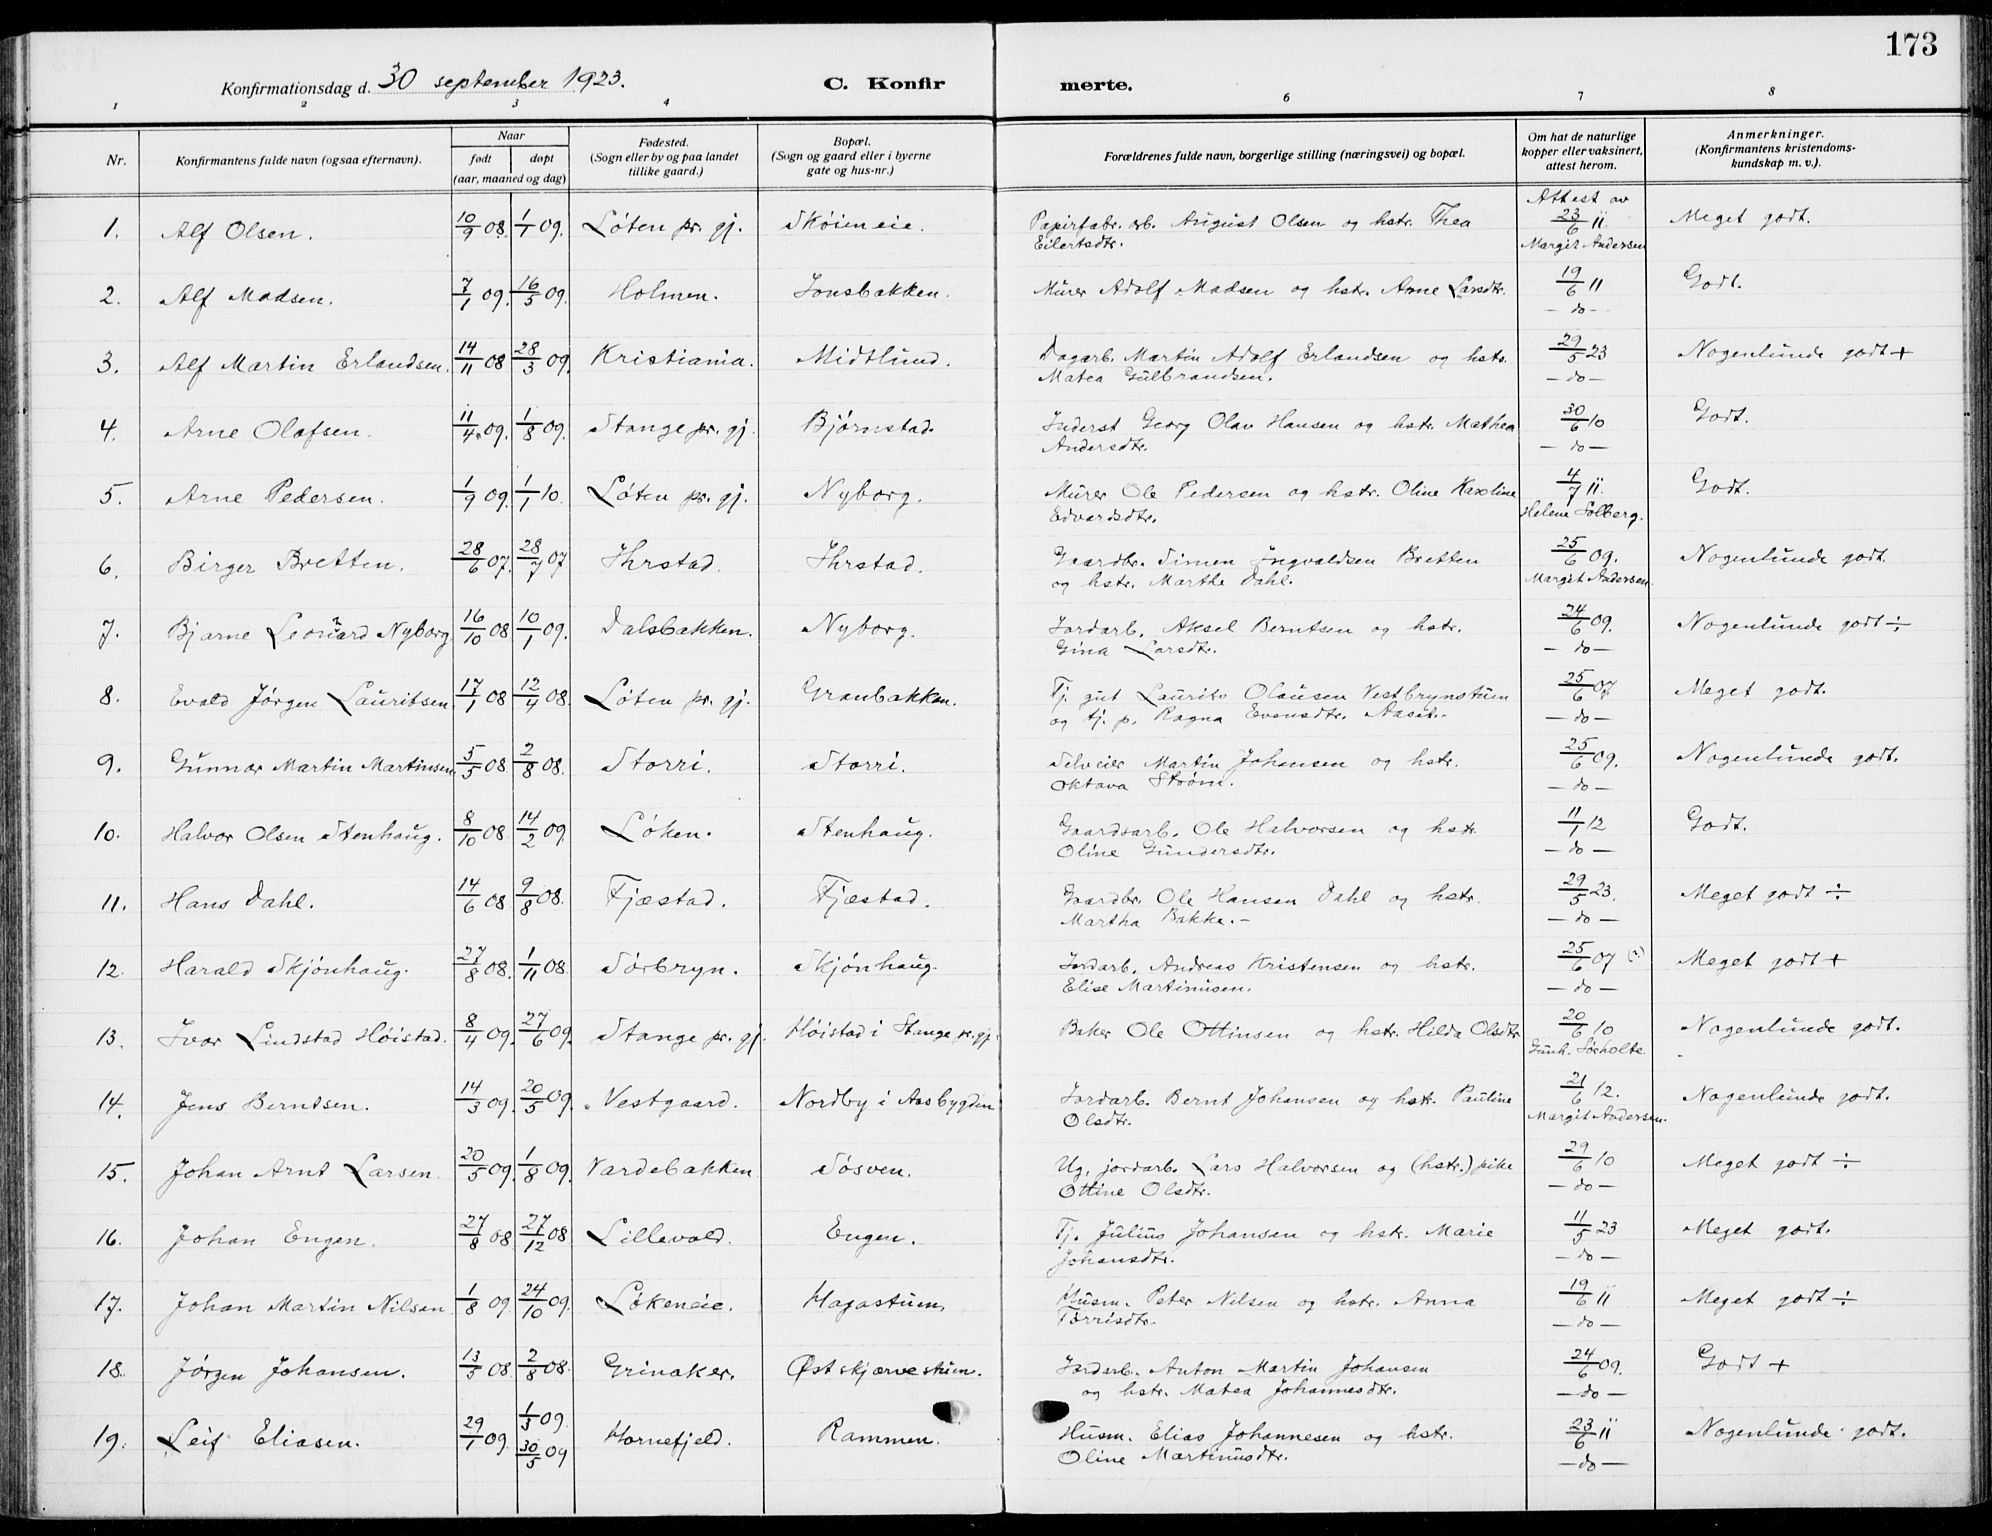 173
Konfirmationsdag d. 30 september 1923.
C. Konfirmerte.
1 2 3 4 6 7 8
Nr. Konfirmantens fulde navn (ogsaa efternavn). Naar født døpt (aar, maaned og dag) Fødested. (Sogn eller by og paa landet tillike gaard.) Bopæl. (Sogn og gaard eller i byerne gate og hus-nr.) Forældrenes fulde navn, borgerlige stilling (næringsvei) og bopæl. Om hat de naturlige kopper eller vaksinert, attest herom. Anmerkninger. (Konfirmantens kristendomskundskap m. v.).
1. Alf Olsen. 10/9 08. 1/1 09. Løten pr. gj. Skøieneie. Papirfabr. arb. August Olsen og hstr. Thea Eilertsdtr. Attest av 23/6 11. Margit Andersen Meget godt.
2. Alf Madsen. 7/1 09. 16/5 09. Holmen. Jonsbakken. Murer Adolf Madsen og hstr. Arne Larsdtr. 19/6 11 —do— Godt.
3. Alf Martin Erlandsen. 14/11 08 28/3 09. Kristiania. Midtlund. Dagarb. Martin Adolf Erlandsen og hstr. Matea Gulbrandsen. 29/5 23 —do— Nogenlunde godt +
4. Arne Olafsen. 11/4 09. 1/8 09. Stange pr. gj. Bjørnstad. Inderst Georg Olav Hansen og hstr. Mathea Andersdtr. 30/6 10 —do— Godt.
5. Arne Pedersen. 1/9 09. 1/1 10. Løten pr. gj. Nyborg. Murer Ole Pedersen og hstr. Oline Karoline Edvardsdtr. 4/7 11. Helene Solberg. Godt.
6. Birger Bretten. 28/6 07. 28/7 07 Ihrstad. Ihrstad. Gaardbr. Simen Ingvaldsen Bretten og hstr. Marthe Dahl. 25/6 09. Margit Andersen. Nogenlunde godt.
7. Bjarne Leonhard Nyborg 16/10 08 10/1 09. Dalsbakken. Nyborg. Jordarb. Aksel Berntsen og hstr. Gina Larsdtr. 24/6 09. —do— Nogenlunde godt ÷
8. Evald Jørgen Lauritsen 17/1 08 12/4 08. Løten pr. gj. Granbakken. Tj. gut Laurits Olausen Vestbrynstuen og tj. p. Ragna Evensdtr. Aaset.- 25/6 07. —do— Meget godt.
9. Gunnar Martin Martinsen 5/5 08. 2/8 08. Storri. Storri. Selveier Martin Johansen og hstr. Oktava Strøm. 25/6 09. —do— Nogenlunde godt.
10. Halvor Olsen Stenhaug. 8/10 08. 14/2 09. Løken. Stenhaug. Gaardsarb. Ole Halvorsen og hstr. Oline Gundersdtr. 11/1 12 —do— Godt.
11. Hans Dahl. 14/6 08 9/8 08. Fjæstad. Fjæstad. Gaardbr. Ole Hansen Dahl og hstr. Martha Bakke.- 29/5 23. —do— Meget godt ÷
12. Harald Skjønhaug. 27/8 08. 1/11 08. Sørbryn. Skjønhaug. Jordarb. Andreas Kristensen og hstr. Elise Martinusen. 25/6 07 (?) —do— Meget godt +
13. Ivar Lindstad Høistad. 8/4 09. 27/6 09. Stange pr. gj. Høistad i Stange pr. gj. Baker Ole Ottinsen og hstr. Hilda Olsdtr 20/6 10 Gunh. Sørholte. Nogenlunde godt.
14. Jens Berntsen. 14/3 09. 20/5 09. Vestgaard. Nordby i Aasbygden Jordarb. Bernt Johansen og hstr. Pauline Olsdtr. 21/6 12. Margit Andersen. Nogenlunde godt.
15. Johan Arnt Larsen. 20/5 09. 1/8 09. Vardebakken Søsven. Ug. jordarb. Lars Halvorsen og (hstr.) pike Ottine Olsdtr. 29/6 10 —do— Meget godt ÷
16. Johan Engen. 27/8 08 27/12 08 Lillevold. Engen. Tj. Julius Johansen og hstr. Marie Johansdtr. 11/5 23 —do— Meget godt.
17. Johan Martin Nilsen 1/8 09. 24/10 09. Løkeneie. Hagastuen, Husm. Peter Nilsen og hstr. Anna Torrisdtr. 19/6 11 —do— Meget godt ÷
18. Jørgen Johansen. 13/5 08. 2/8 08. Grinaker. Østskjærvestuen. Jordarb. Anton Martin Johansen og hstr. Matea Johannesdtr. 24/6 09. —do— Godt +
19. Leif Eliasen. 29/1 09. 1/3 09. 30/5 09 Hornefjeld. Rammen. Husm. Elias Johannesen og hstr. Oline Martinusdtr. 23/6 11 —do— Nogenlunde godt.